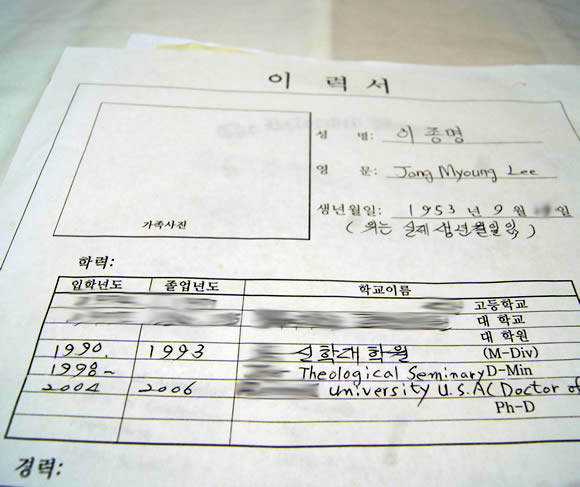 이 력 서
성 명: 이종명
영 문: Jong Myoung Lee
생년월일: 1953 년 9 월 일
( 위는 실제 생년월일임)
가족사진
학력:
입학년도 졸업년도 학교이름
고등학교
대 학교
대 학원
1990. 1993 신학대학원 (M-Div)
1998~ Theological Seminary D-Min
2004 2006 university U.S.A( Doctor of
Ph-D
경력: